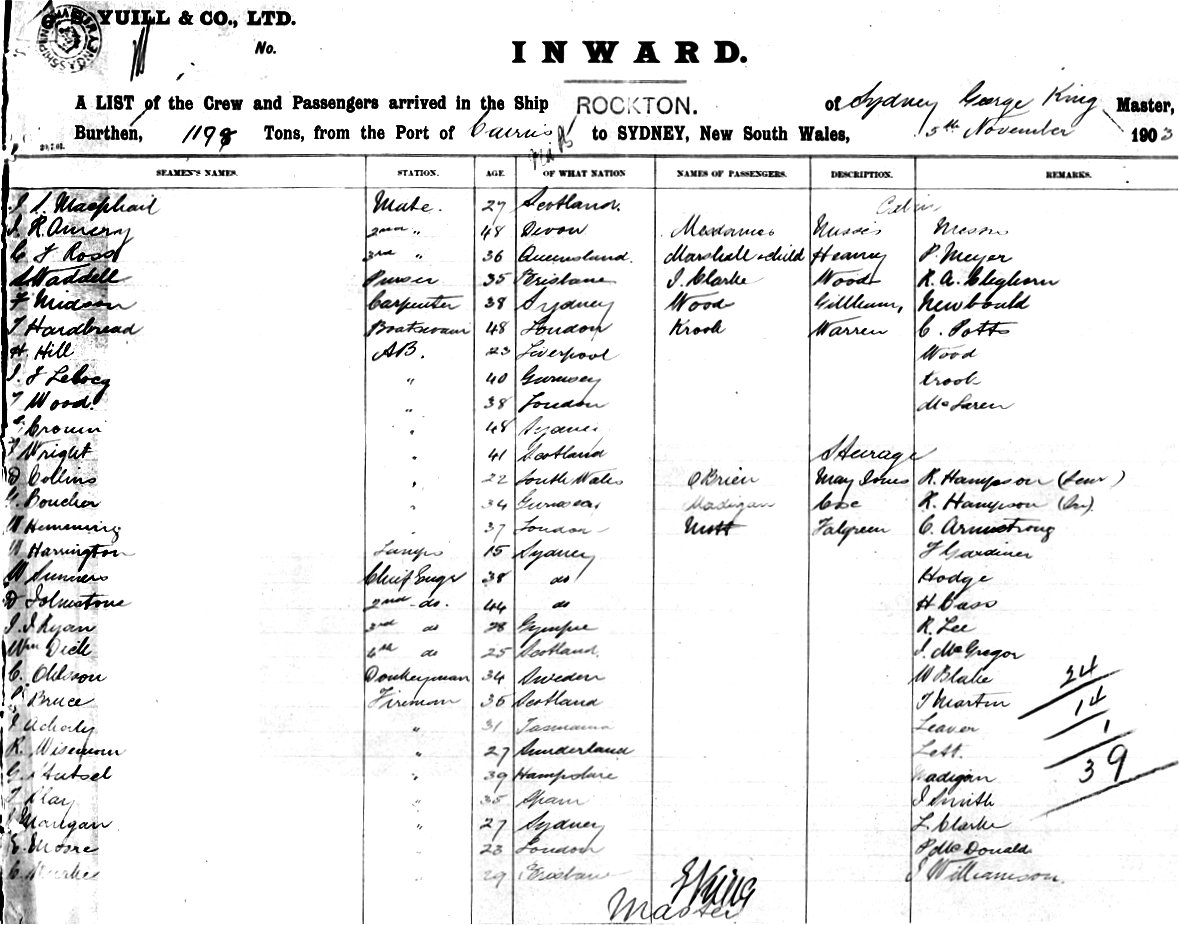 YUILL & CO., LTD.
No.
INWARD.
A LIST of the Crew and Passengers arrived in the Ship ROCKTON. of Sydney George King Master,
Burthen, 1198 Tons, from the Port of Cairns to SYDNEY, New South Wales, 5th November 1903
SEAMEN'S NAMES. STATION. AGE. OF WHAT NATION NAMES OF PASSENGERS. DESCRIPTION. REMARKS.
Cabin
Macphail Mate. 27 Scotland.
2nd " 48 Devon Mesdames Misses Messrs
C F Ross 3rd " 36 Queensland. Marshall & child Heaney P. Meyer
Waddell Purser 35 Brisbane J. Clarke Wood R. A. Cleghorn
F Midson Carpenter 38 Sydney Wood Gillham, Newbould
T Hardbread Boatswain 48 London Krook Warren C. Potts
H. Hill AB. 23 Liverpool Wood
" 40 Gurnsey Krook
T Wood. " 38 London McLaren
" 48 Sydney
Wright " 41 Scotland Steerage
D Collins " 22 South Wales O'Brien May Jones R. Hampson (Senr)
Boucher " 34 Madigan Coe R. Hampson (Jnr)
W Hemming " 37 London Mott C. Armstrong
W Harrington Lamps 15 Sydney F Gardiner
W Sumners Chief Engr 38 do Hodge
D Johnstone 2nd do. 44 do H Bass
J. J Ryan 3rd do 28 Gympie R. Lee
Wm Dick 4th do 25 Scotland. J. McGregor
C. Ohlsson Donkeyman 34 Sweden W Blake 24
Bruce Fireman 36 Scotland T Martin 14
" 31 Tasmania Leaver 1
R. Wiseman " 27 Sunderland Lett. 39
" 39 Hampshire Madigan
" 35 Spain J. Smith
Mangan " 27 Sydney L. Clarke
E. Moore " 23 London P. McDonald
29 Brisbane J Williamson.
G King
Master